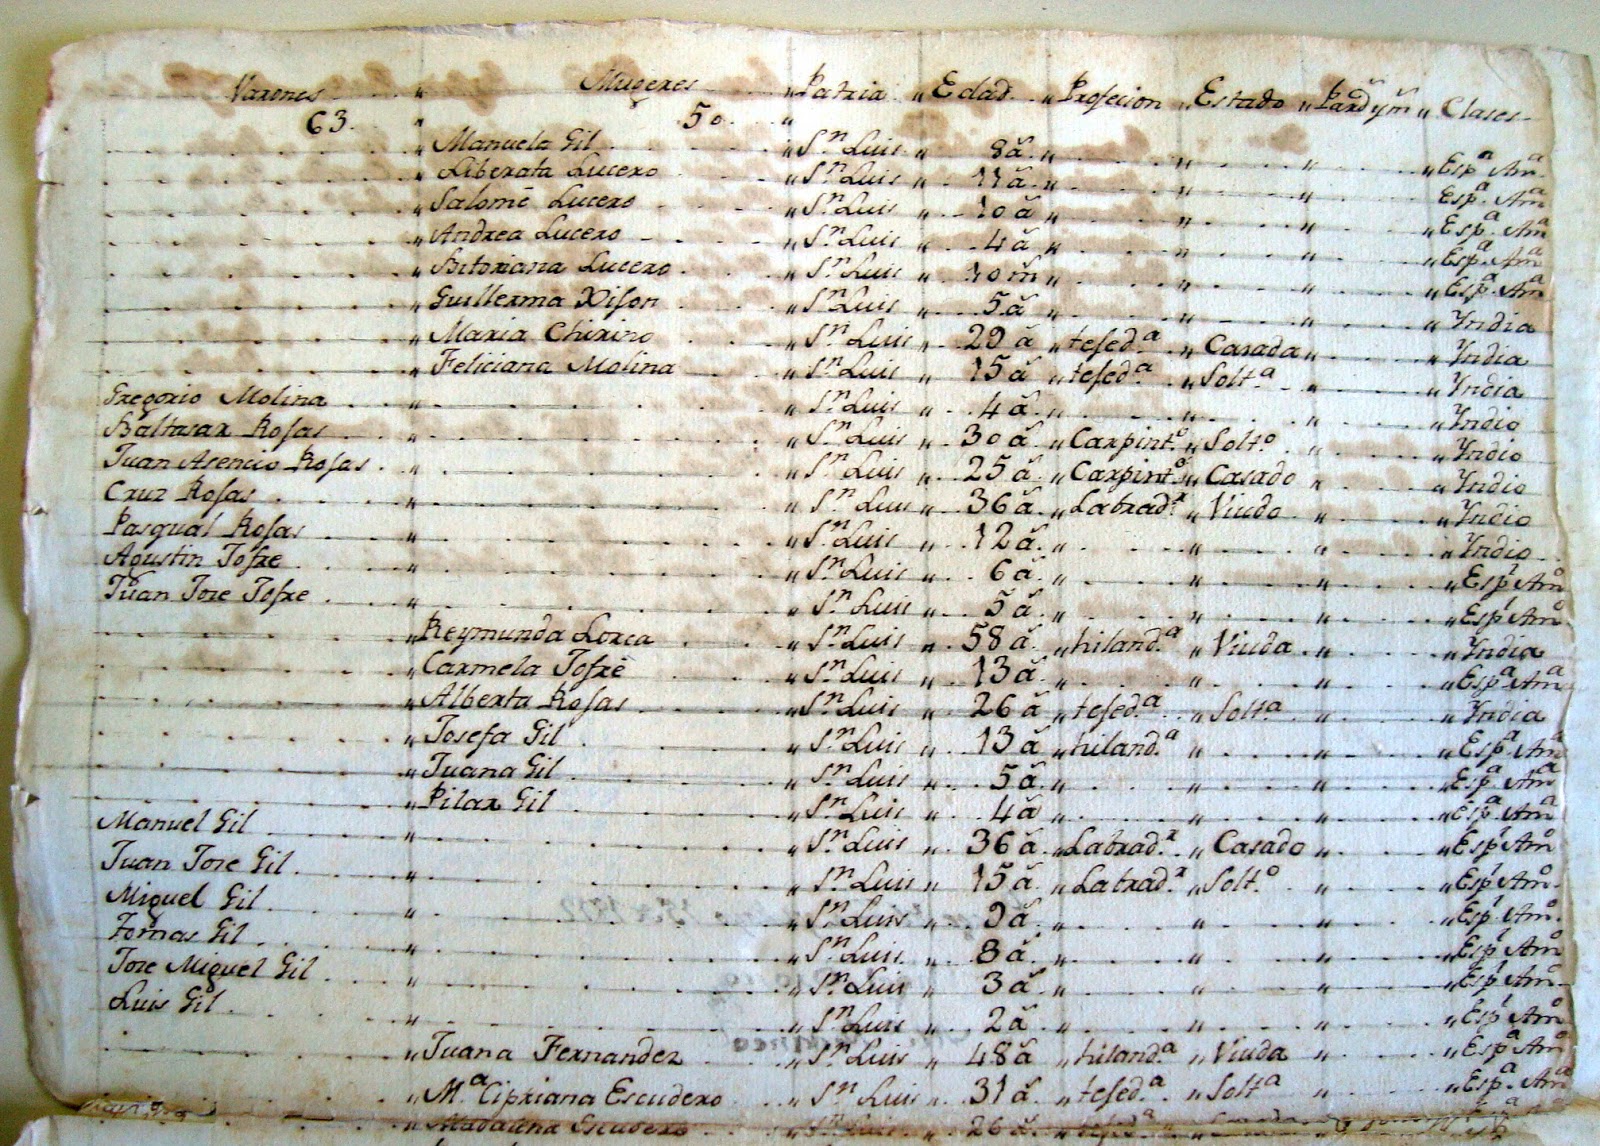 Varones " Mugeres " Patria " Edad " Profecion " Estado " Pardym " Clases
63. " 50 "
" Manuela Gil " Sn. Luis " 8 a " " " " Espa. Ama
" Liberata Lucero " Sn. Luis " 11 a " " " Espa. Ama
" Salomé Lucero " Sn. Luis " 10 a " " " " Espa. Ama
" Andrea Lucero " Sn. Luis " 4 a " " " " Espa. Ama
" Bitoriana Lucero " Sn. Luis " 10 m " " " " Espa. Ama
" Guillerma " Sn. Luis " 5 a " " " " Yndia
" Maria Chirino " Sn. Luis " 29 a " tesed.a " Casada " " Yndia
" Feliciana Molina " Sn. Luis " 15 a " tesed.a " Solt.a " " Yndia
Gregorio Molina " " Sn. Luis " 4 a " " " " Yndio
Baltasar Rosas " " Sn. Luis " 30 a " Carpint.o " Solt.o " " Yndio
Juan Asencio Rosas " " Sn. Luis " 25 a " Carpint.o " Casado " " Yndio
Cruz Rosas " " Sn. Luis " 36 a " Labrad.r " Viudo " " Yndio
Pasqual Rosas " " Sn. Luis " 12 a " " " " Yndio
Agustin Jofre " " Sn. Luis " 6 a " " " " Esp. Amo
Juan Jose Jofre " " Sn. Luis " 5 a " " " " Esp. Amo
" Reymunda Lorca " Sn. Luis " 58 a " hiland.a " Viuda " " Yndia
" Carmela Jofré " Sn. Luis " 13 a " " " " Espa. Ama
" Alberta Rosas " Sn. Luis " 26 a " tesed.a " Solt.a " " Yndia
" Josefa Gil " Sn. Luis " 13 a " hiland.a " " " Espa. Ama
" Juana Gil " Sn. Luis " 5 a " " " " Espa. Ama
" Pilar Gil " Sn. Luis " 4 a " " " " Espa. Ama
Manuel Gil " " Sn. Luis " 36 a " Labrad.r " Casado " " Esp. Amo
Juan Jose Gil " " Sn. Luis " 15 a " Labrad.r " Solt.o " " Esp. Amo
Miguel Gil " " Sn. Luis " 9 a " " " " Esp. Amo
Tomas Gil " " Sn. Luis " 8 a " " " " Esp. Amo
Jose Miguel Gil " " Sn. Luis " 3 a " " " " Esp. Amo
Luis Gil " " Sn. Luis " 2 a " " " " Esp. Amo
" Juana Fernandez " Sn. Luis " 48 a " hiland.a " Viuda " " Espa. Ama
" Ma. Cipriana Escudero " Sn. Luis " 31 a " tesed.a " Solt.a " " Espa. Ama
" Madalena Escudero " Sn. Luis " 26 a " tesed.a